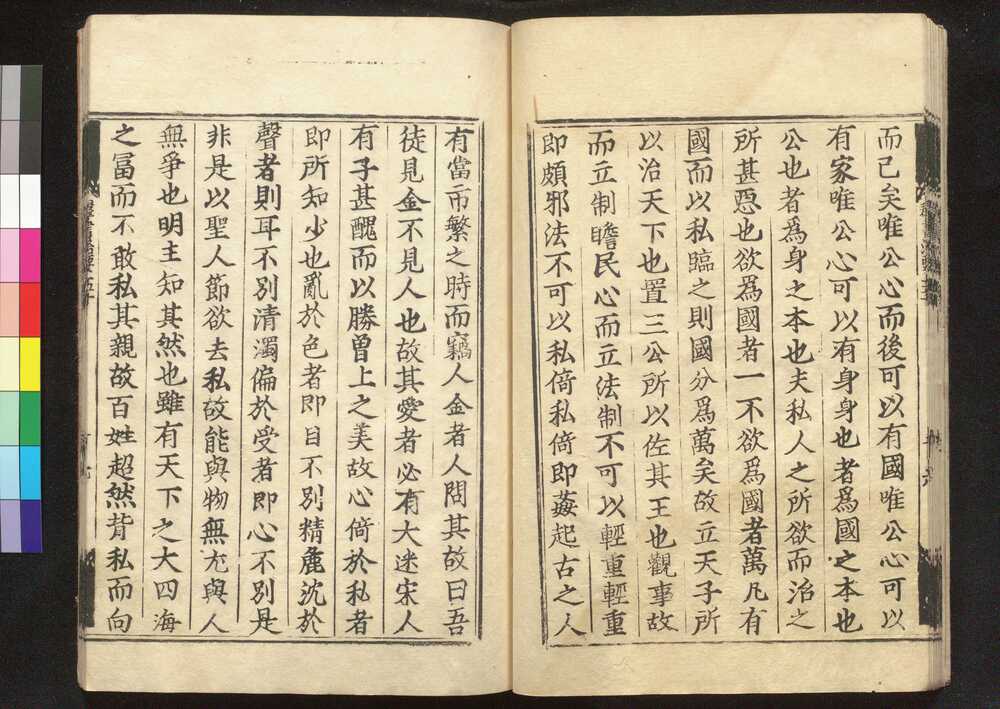 而已矣唯公心而後可以有國唯公心可以
有家唯公心可以有身身也者為國之本也
公也者為身之本也夫私人之所欲而治之
所甚惡也欲為國者一不欲為國者萬凡有
國而以私臨之則國分為萬矣故立天子所
以治天下也置三公所以佐其王也觀事故
而立制瞻民心而立法制不可以輕重輕重
即頗邪法不可以私倚私倚即姦起古之人
有當市繁之時而竊人金者人問其故曰吾
徒見金不見人也故其愛者必有大迷宋人
有子甚醜而以勝曾上之美故心倚於私者
即所知少也亂於色者即目不別精麁沈於
聲者則耳不別清濁偏於受者即心不別是
非是以聖人節欲去私故能與物無尤與人
無爭也明主知其然也雖有天下之大四海
之冨而不敢私其親故百姓超然背私而向